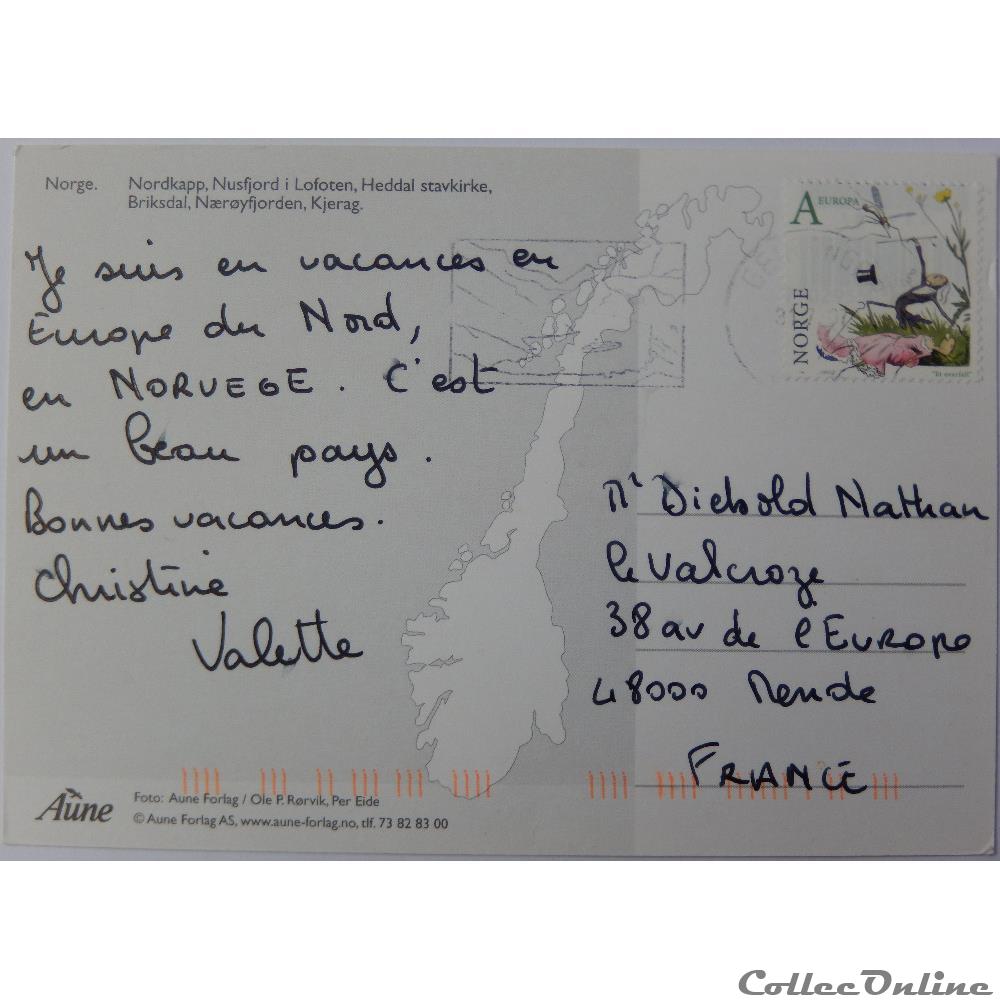 Norge. Nordkapp, Nusfjord i Lofoten, Heddal stavkirke,
Briksdal, Nærøyfjorden, Kjerag.
Je suis en vacances en
Europe du Nord,
en NORVEGE. C'est
un beau pays.
Bonnes vacances.
Christine
Valette
A EUROPA
NORGE
"Et overfall"
Mr Diebold Nathan
le Valcroze
38 av de l'Europe
48000 Mende
FRANCE
Aune
Foto: Aune Forlag / Ole P. Rørvik, Per Eide
© Aune Forlag AS, www.aune-forlag.no, tlf. 73 82 83 00
CollecOnline